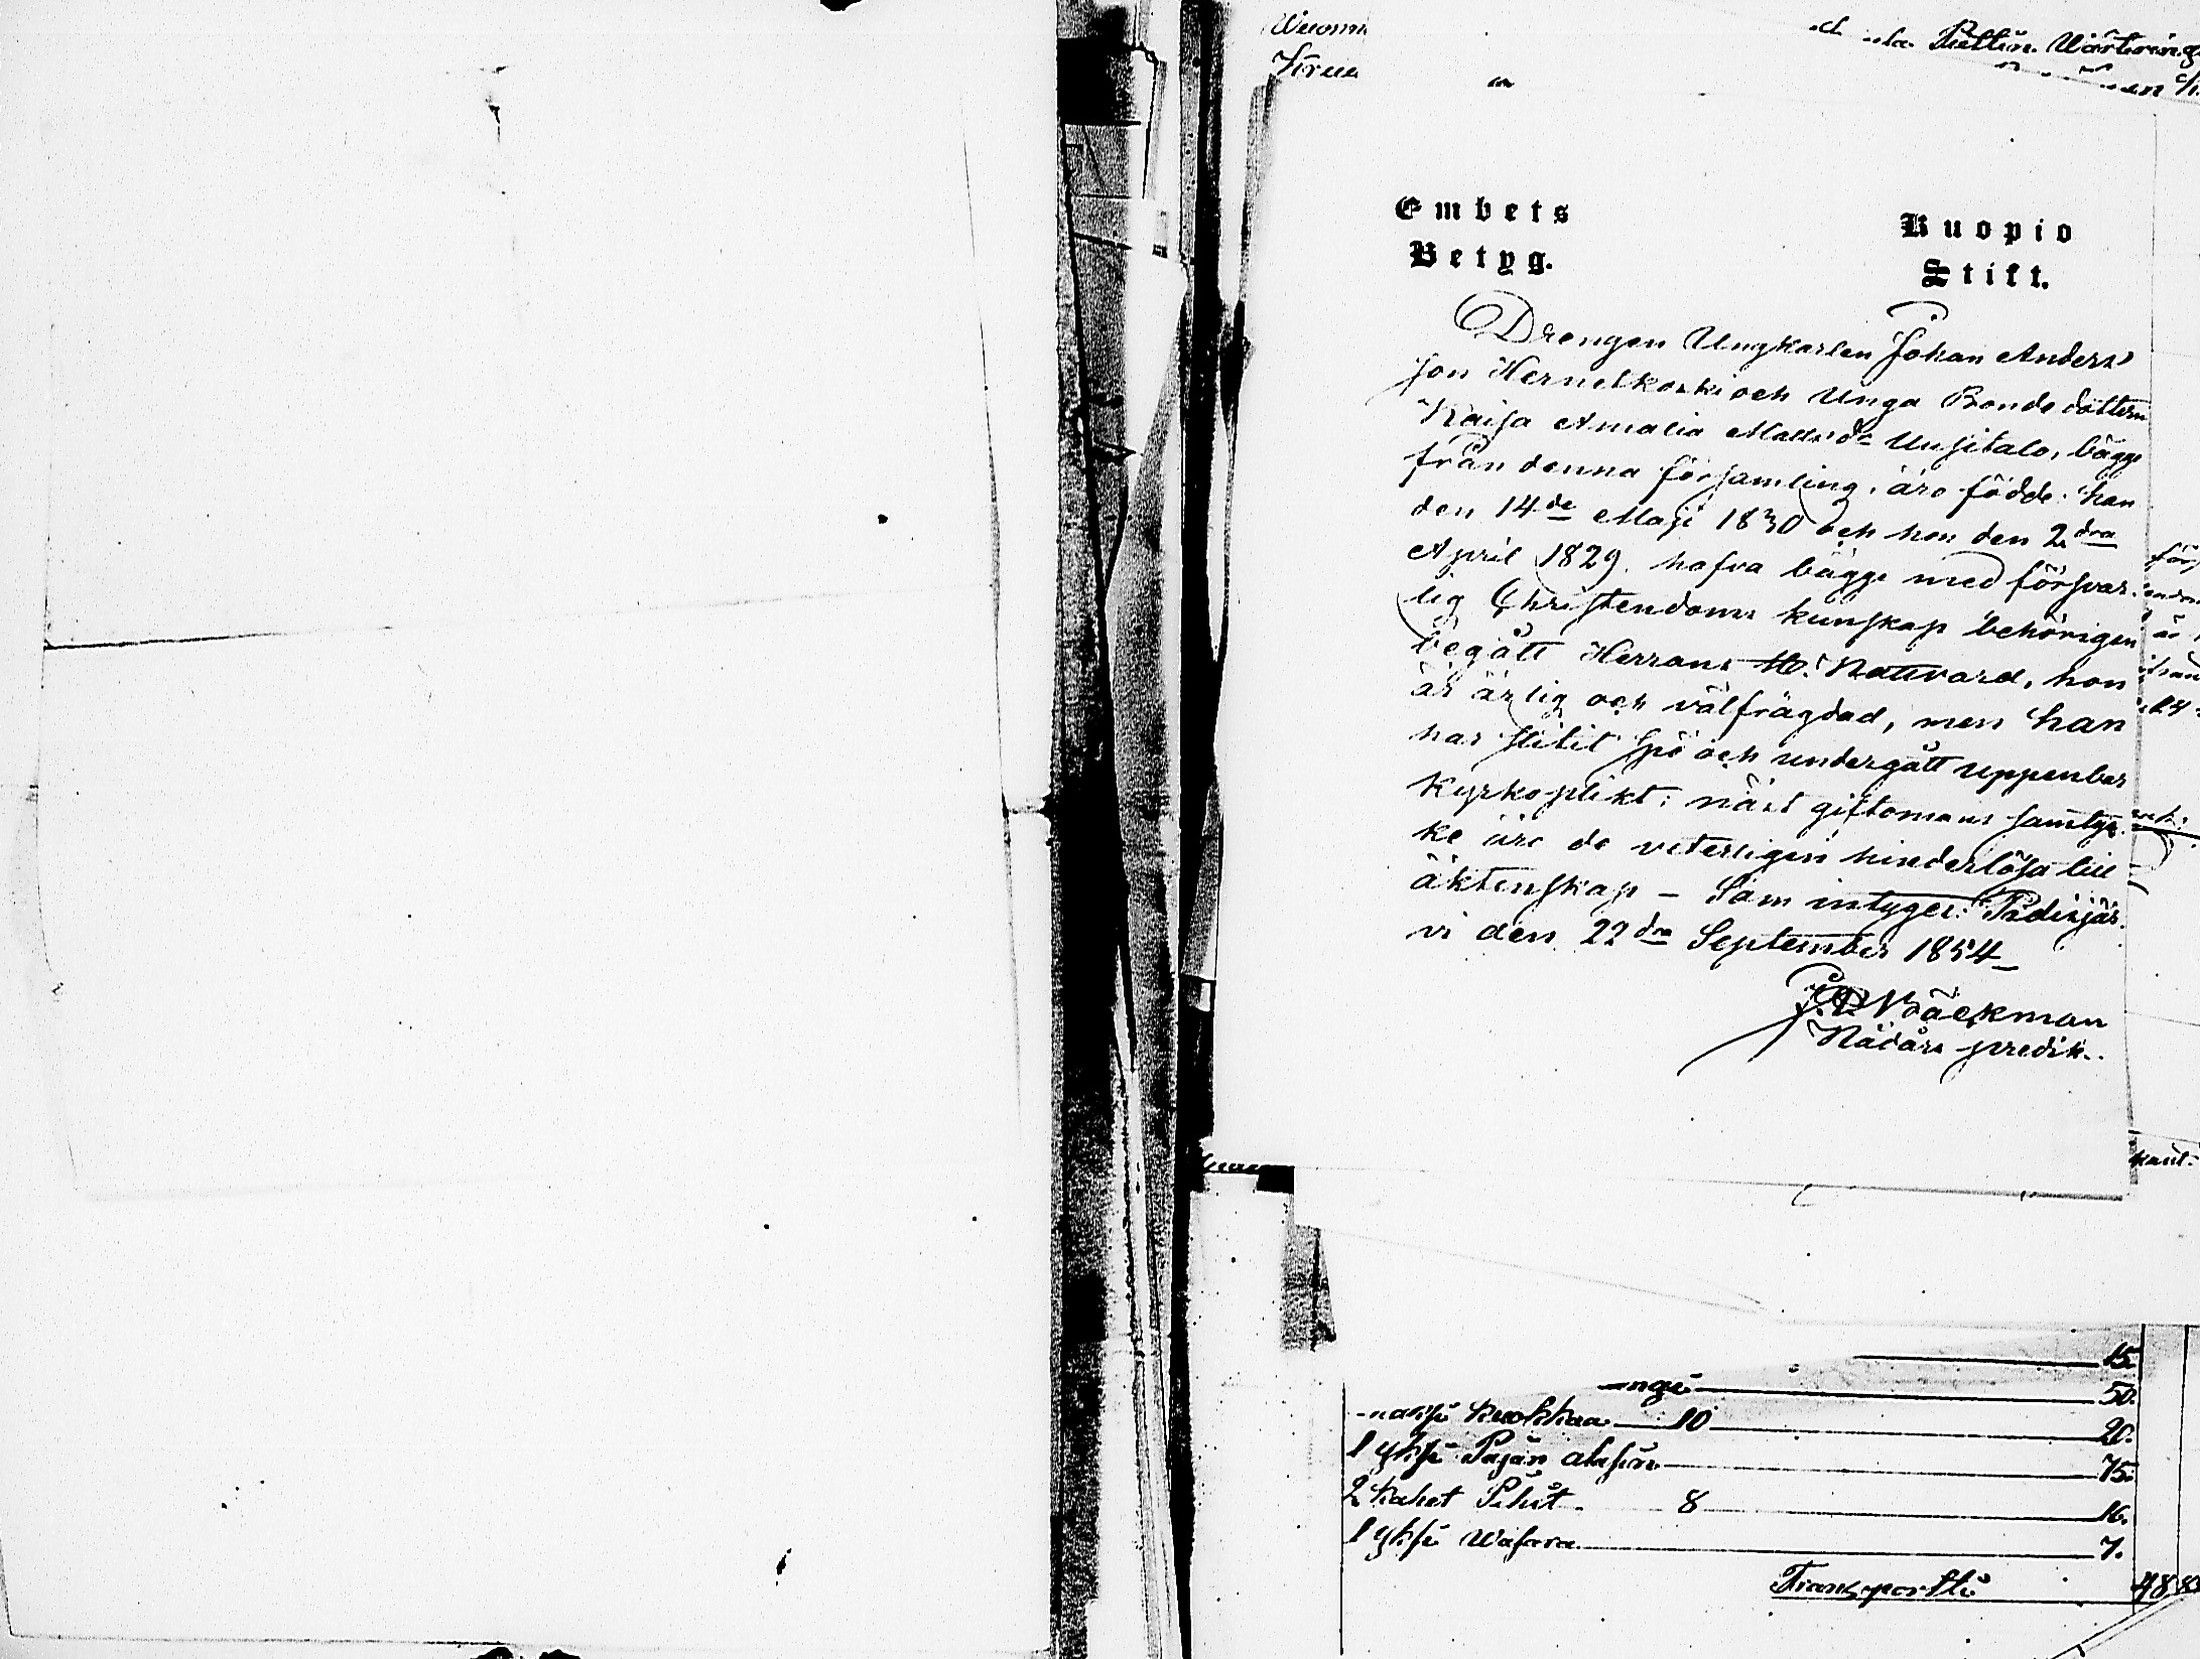 Embets
Betyg.
Kuopio
Stift.
Drengen Ungkarlen Johan Anders
son Hernetkoski och Unga Bonde dottern
Kaisa Amalia Matts dr Uusitalo, bägge
från denna församling, äro födde: han
den 14de Maji 1830 och hon den 2dra
April 1829. hafva bägge med försvar-
lig Christendoms kunskap behörigen
begått Herrans H. Nattvard, hon
är ärlig och välfrägdad, men han
har slitit spö och undergått uppenbar
Kyrkoplikt; näst giftomans samtyc-
ke äro de veterligen hinderlösa till
äktenskap – Som intygar. Pädisjär-
vi den 22dra September 1854
Bäckman
Nådårs predik.
15.
50.
kuokkaa 10 20.
1 yksi Pajan alasin 75.
2 kahet Pihit 8 16.
1 yksi Wasara 7.
Transportti